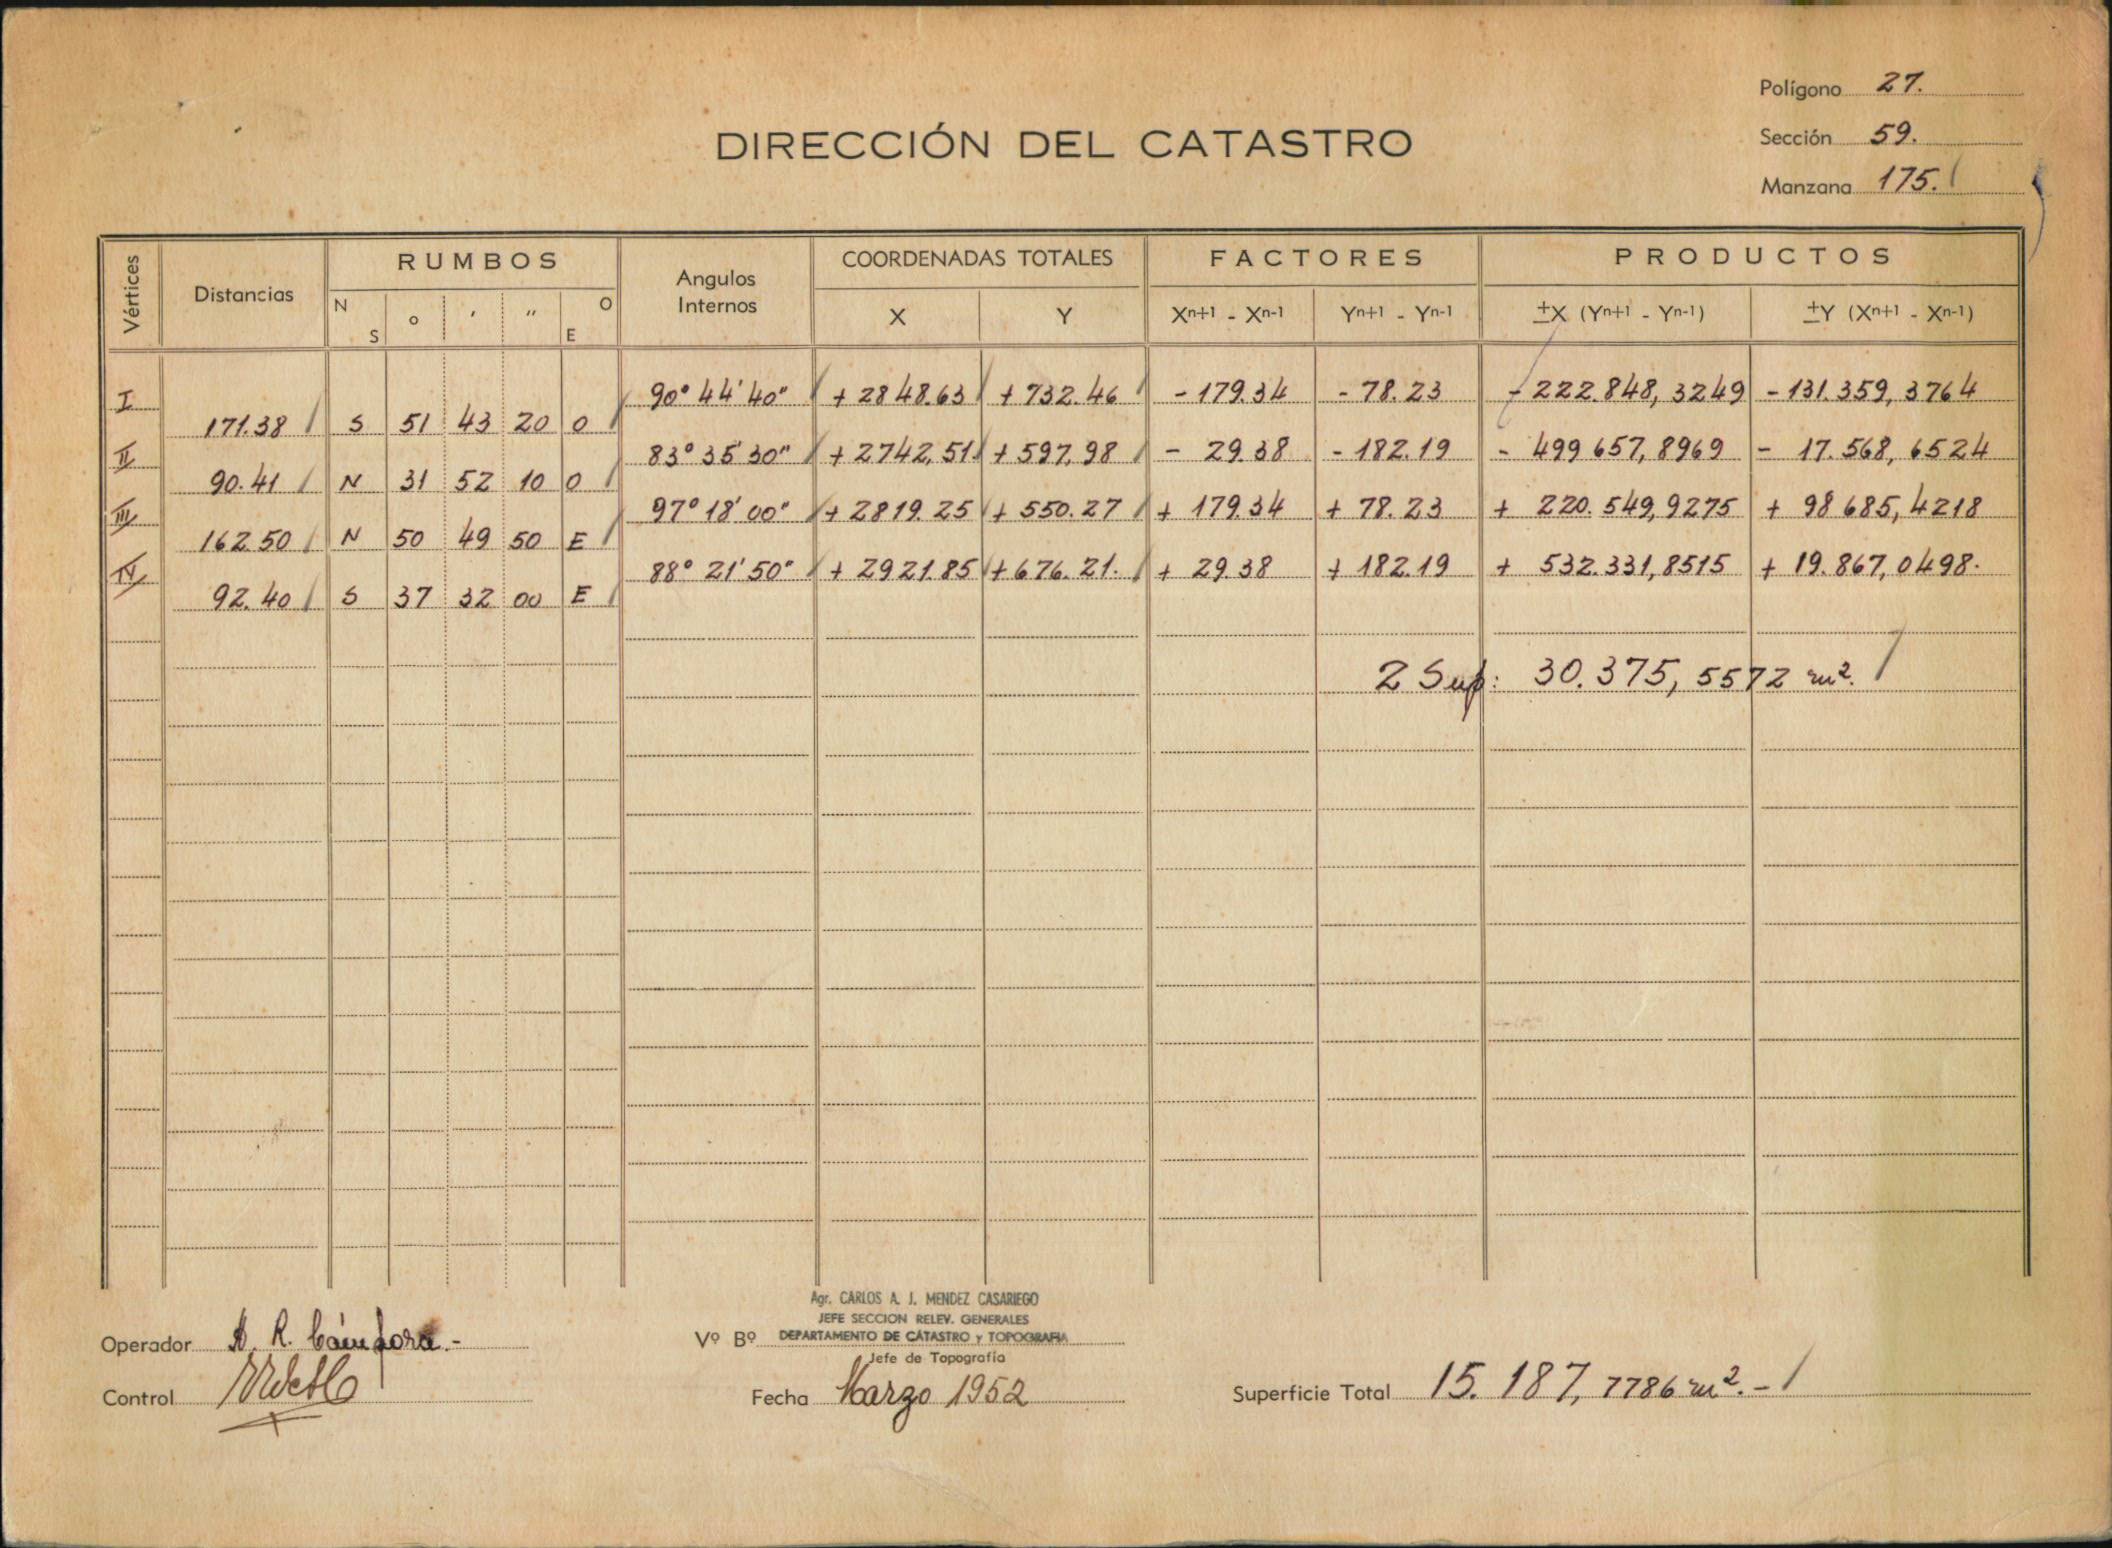 Polígono 27.
DIRECCIÓN DEL CATASTRO
Sección 59.
Manzana 175.
Vértices Distancias RUMBOS Angulos Internos COORDENADAS TOTALES FACTORES PRODUCTOS
N S o ' " O E X Y Xn+1 - Xn-1 Yn+1 - Yn-1 ±X (Yn+1 - Yn-1) ±Y (Xn+1 - Xn-1)
I 90° 44' 40" + 2848.63 + 732.46 - 179.34 - 78.23 - 222.848,3249 - 131.359,3764
171.38 S 51 43 20 O
II 83° 35' 30" + 2742,51 + 597,98 - 29.38 - 182.19 - 499 657,8969 - 17.568,6524
90.41 N 31 52 10 O
III 97° 18' 00" + 2819.25 + 550.27 + 179.34 + 78.23 + 220.549,9275 + 98 685,4218
162.50 N 50 49 50 E
IV 88° 21' 50" + 2921.85 + 676.21. + 29.38 + 182.19 + 532.331,8515 + 19.867,0498.
92.40 S 37 32 00 E
2 Sup: 30.375,5572 m².
Agr. CARLOS A. J. MENDEZ CASARIEGO
JEFE SECCION RELEV. GENERALES
Operador A. R. Cámpora.- Vº Bº DEPARTAMENTO DE CATASTRO y TOPOGRAFIA
Jefe de Topografía
Control Fecha Marzo 1952 Superficie Total 15.187,7786 m².-